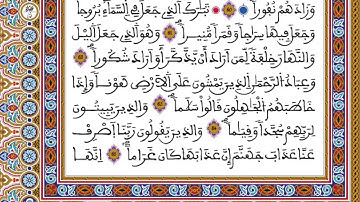 وَزَادَهُمْ نُفُوراً ۩ تَبَٰرَكَ ٱلذِے جَعَلَ فِے اِ۬لسَّمَآءِ بُرُوجاٗ
وَجَعَلَ فِيهَا سِرَٰجاٗ وَقَمَراٗ مُّنِيراٗ وَهُوَ ٱلذِے جَعَلَ ٱليْلَ
وَالنَّهَارَ خِلْفَةٗ لِّمَنَ اَرَادَ أَنْ يَّذَّكَّرَ أَوَ اَرَادَ شُكُوراٗ
وَعِبَادُ اُ۬لرَّحْمَٰنِ اِ۬لذِينَ يَمْشُونَ عَلَي اَ۬لَارْضِ هَوْناٗ وَإِذَا
خَاطَبَهُمُ اُ۬لْجَٰهِلُونَ قَالُواْ سَلَٰماٗ وَالذِينَ يَبِيتُونَ
لِرَبِّهِمْ سُجَّداٗ وَقِيَٰماٗ وَالذِينَ يَقُولُونَ رَبَّنَا اَ۪صْرِفْ
عَنَّا عَذَابَ جَهَنَّمَ إِنَّ عَذَابَهَا كَانَ غَرَاماً اِنَّهَا